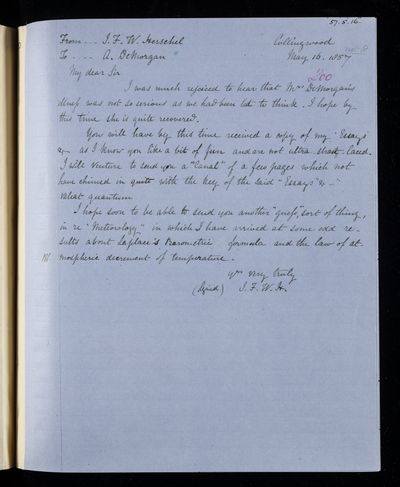 57.5.16.
From - - - J. F. W. Herschel Collingwood
To - - - - A. DeMorgan May 16. 1857
My dear Sir
I was much rejoiced to hear that Mrs DeMorgan's
illness was not so serious as we had been led to think. I hope by
this time she is quite recovered.
You will have by this time received a copy of my "Essays
&c - as I know you like a bit of fun and are not ultra strait-laced.
I will venture to send you a "Canal" of a few pages which not
have chimed in quite with the key of the said "Essays &c -"
valeat quantum
I hope soon to be able to send you another "quasi" sort of thing,
in re "Meteorology" in which I have arrived at some odd re-
sults about Laplace's Barometric formula and the law of at-
mospheric decrement of temperature.
yrs very truly
(signed) J. F. W. H.